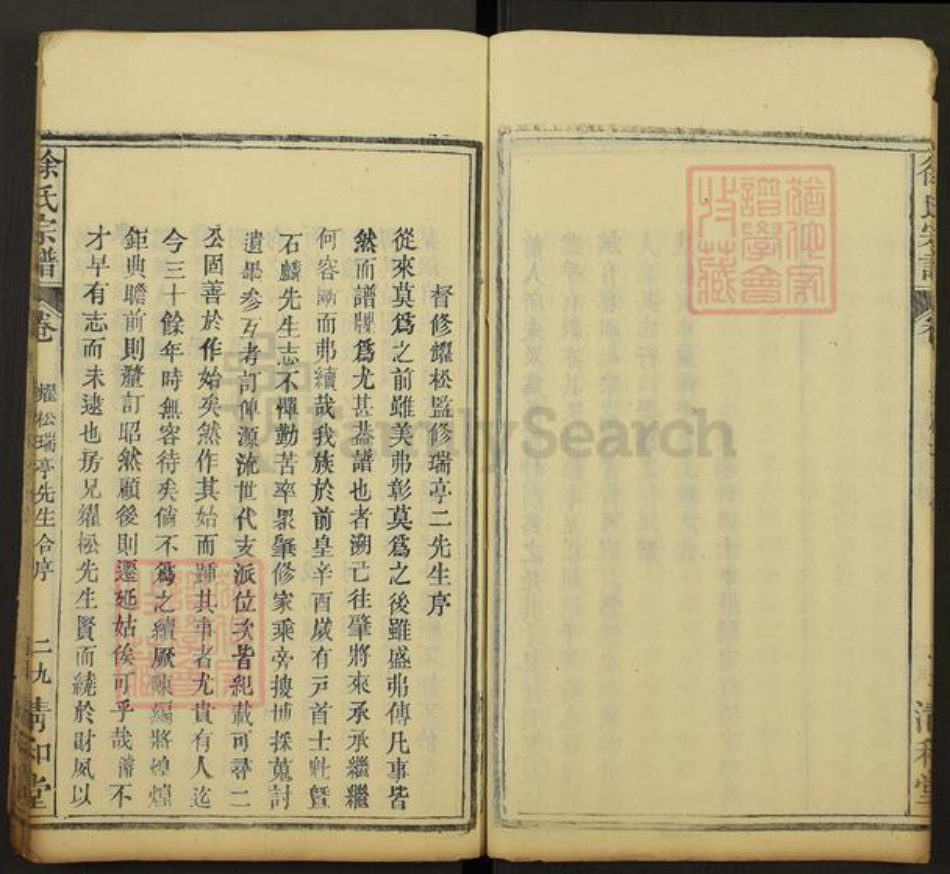 督修耀松監修瑞亭二先生序
從來莫爲之前雖美弗彰莫爲之後雖盛弗傳凡事皆
然而譜牒爲尤甚葢譜也者溯已往肇將來承承繼繼
何容斷而弗續哉我族於前皇辛酉歲有戸首士魁曁
石麟先生志不憚勤苦率眾肇修家乘旁搜博採蒐討
遺畢參互考訂俾源流世代支派位次皆紀載可尋二
公固善於作始矣然作其始而踵其事者尤貴有人迄
今三十餘年時無容待矣倘不爲之續厥陳編將煌煌
鉅典瞻前則釐訂昭然顧後則遷延姑俟可乎哉濤不
才早有志而未逮也房兄耀松先生賢而繞於財夙以
徐氏宗譜
卷
耀松瑞亭先生合序
二九
清和堂
徐氏宗譜
清和堂
猶他家譜學會收藏
FamilySearch